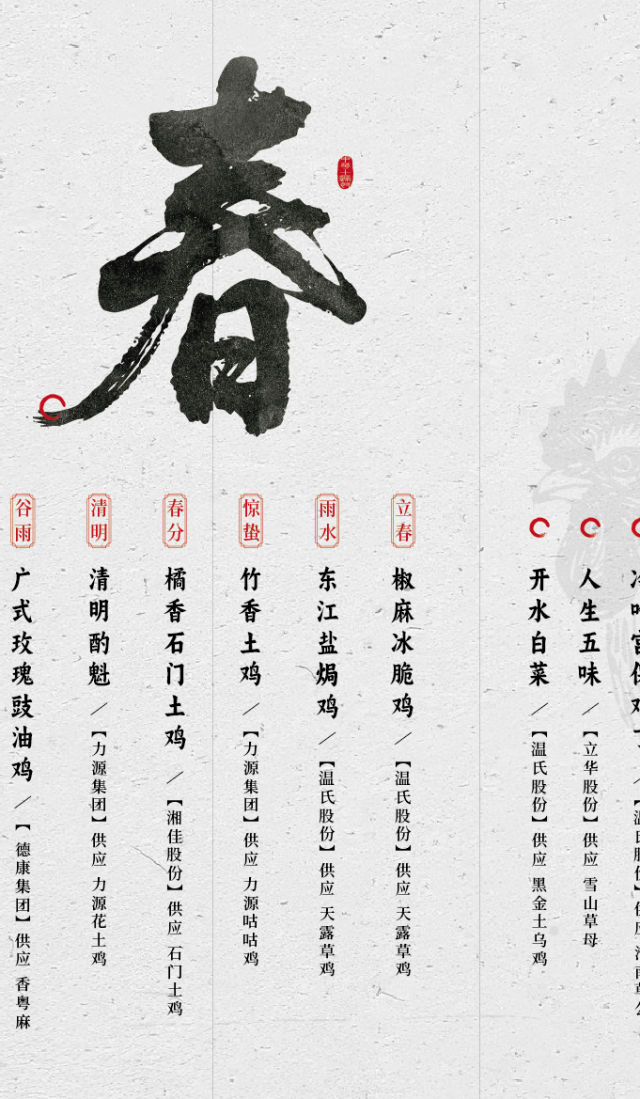 人生五味／【立华股份】供应 雪山草母
开水白菜／【温氏股份】供应 黑金土乌鸡
春
立春
椒麻冰脆鸡／【温氏股份】供应 天露草鸡
雨水
东江盐焗鸡／【温氏股份】供应 天露草鸡
惊蛰
竹香土鸡／【力源集团】供应 力源咕咕鸡
春分
橘香石门土鸡／【湘佳股份】供应 石门土鸡
清明
清明酌魁／【力源集团】供应 力源花土鸡
谷雨
广式玫瑰豉油鸡／【德康集团】供应 香粤麻